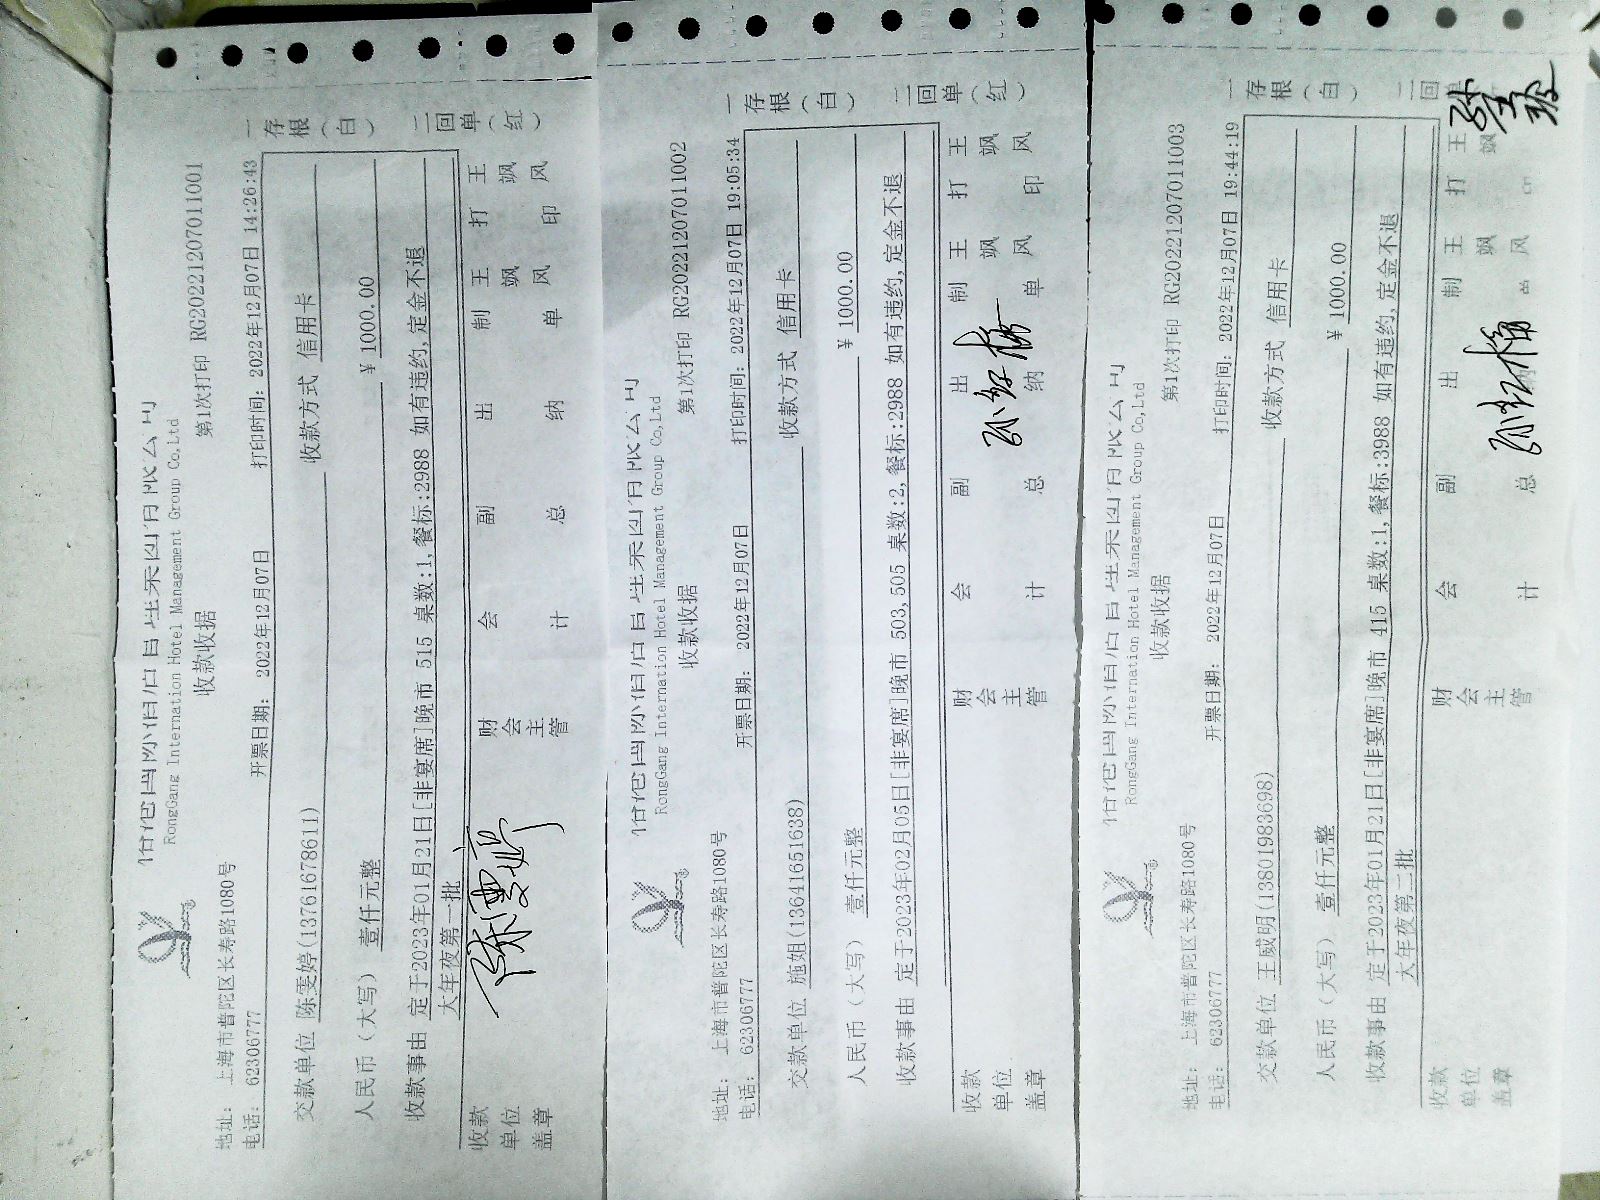 RongGang International Hotel Management Group Co,Ltd
收款收据 第1次打印 RG20221207011001
地址： 上海市普陀区长寿路1080号
电话： 62306777 开票日期： 2022年12月07日 打印时间： 2022年12月07日 14:26:43
交款单位 陈雯婷(13761678611) 收款方式 信用卡
人民币（大写） 壹仟元整 ¥ 1000.00
收款事由 定于2023年01月21日[非宴席]晚市 515 桌数:1,餐标:2988 如有违约,定金不退
大年夜第一批
收款单位盖章 财会主管 会计 副总 出纳 制单 王飒风 打印 王飒风
陈雯婷
一存根（白） 二回单（红）
RongGang International Hotel Management Group Co,Ltd
收款收据 第1次打印 RG20221207011002
地址： 上海市普陀区长寿路1080号
电话： 62306777 开票日期： 2022年12月07日 打印时间： 2022年12月07日 19:05:34
交款单位 施姐(13641651638) 收款方式 信用卡
人民币（大写） 壹仟元整 ¥ 1000.00
收款事由 定于2023年02月05日[非宴席]晚市 503,505 桌数:2,餐标:2988 如有违约,定金不退
收款单位盖章 财会主管 会计 副总 出纳 制单 王飒风 打印 王飒风
一存根（白） 二回单（红）
RongGang International Hotel Management Group Co,Ltd
收款收据 第1次打印 RG20221207011003
地址： 上海市普陀区长寿路1080号
电话： 62306777 开票日期： 2022年12月07日 打印时间： 2022年12月07日 19:44:19
交款单位 王威明(13801983698) 收款方式 信用卡
人民币（大写） 壹仟元整 ¥ 1000.00
收款事由 定于2023年01月21日[非宴席]晚市 415 桌数:1,餐标:3988 如有违约,定金不退
大年夜第二批
收款单位盖章 财会主管 会计 副总 出纳 制单 王飒风 打印 王飒
一存根（白） 二回